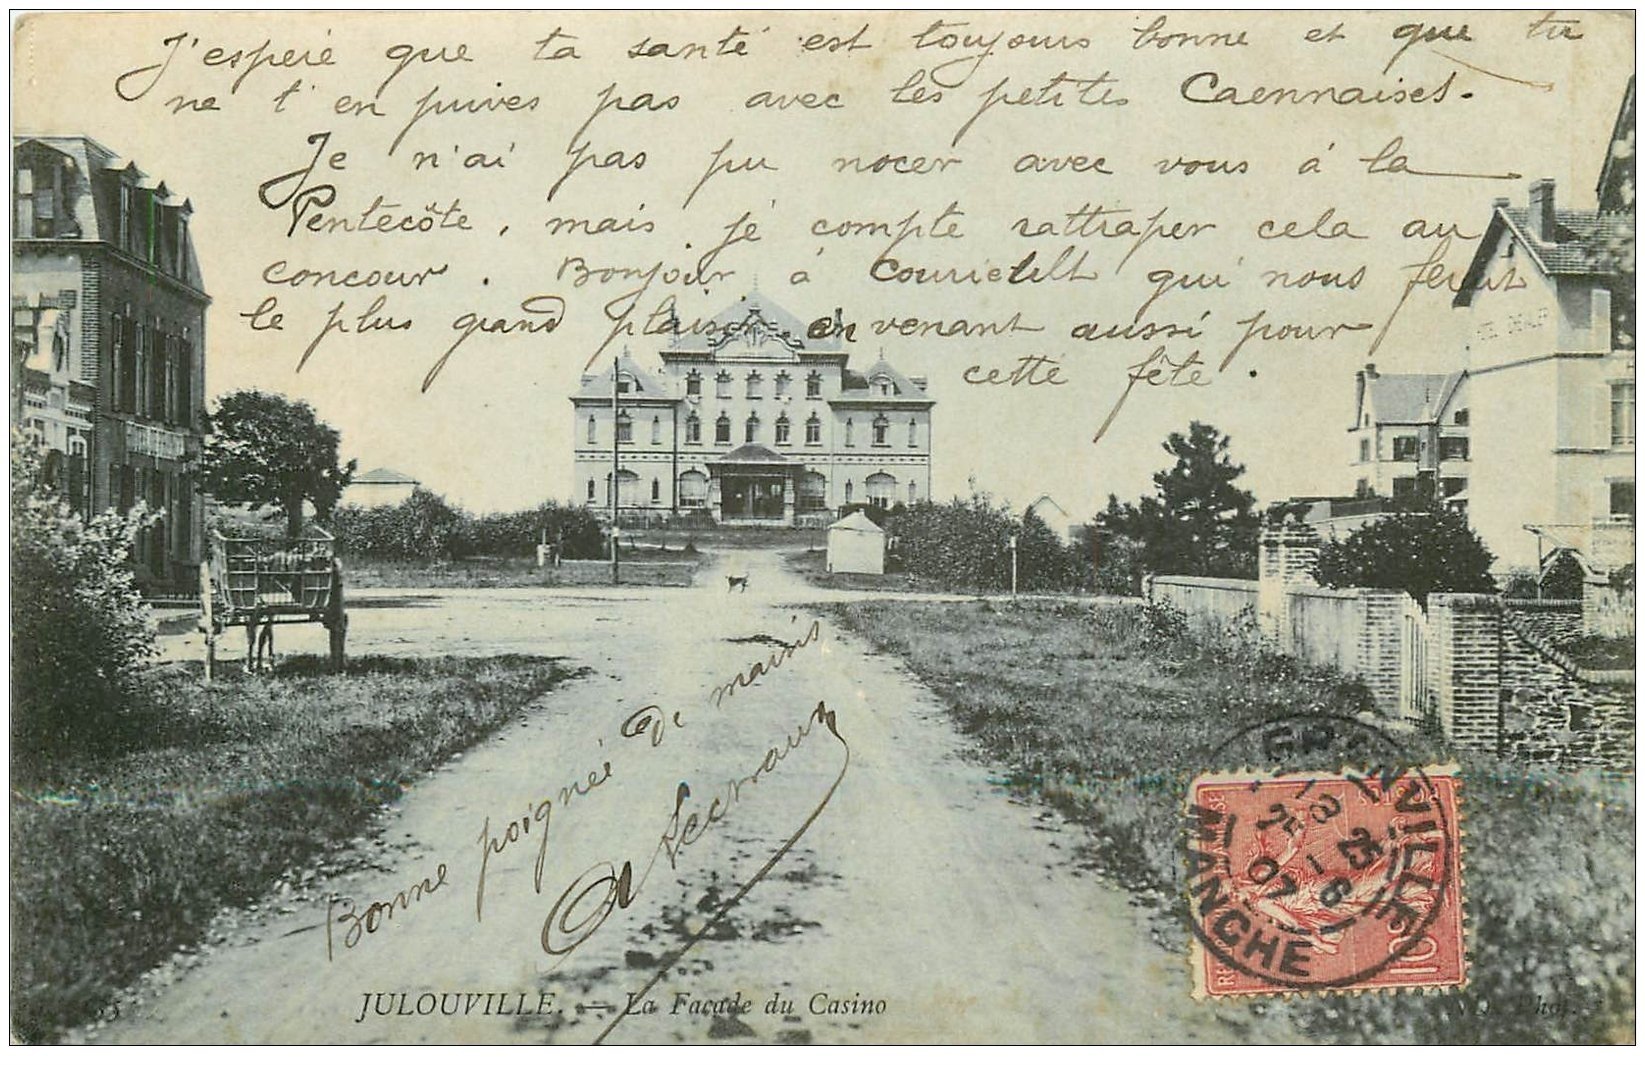 J'espère que ta santé est toujours bonne et que tu
ne t'en prives pas avec les petites Caennaises.
Je n'ai pas pu nocer avec vous à la
Pentecôte, mais je compte rattraper cela au
concour. Bonjour à qui nous ferait
le plus grand plaisir en venant aussi pour
cette fête.
Bonne poignée de mains
GRANVILLE
MANCHE
25 - 6
07
10
JULOUVILLE. — La Façade du Casino
ND. Phot.